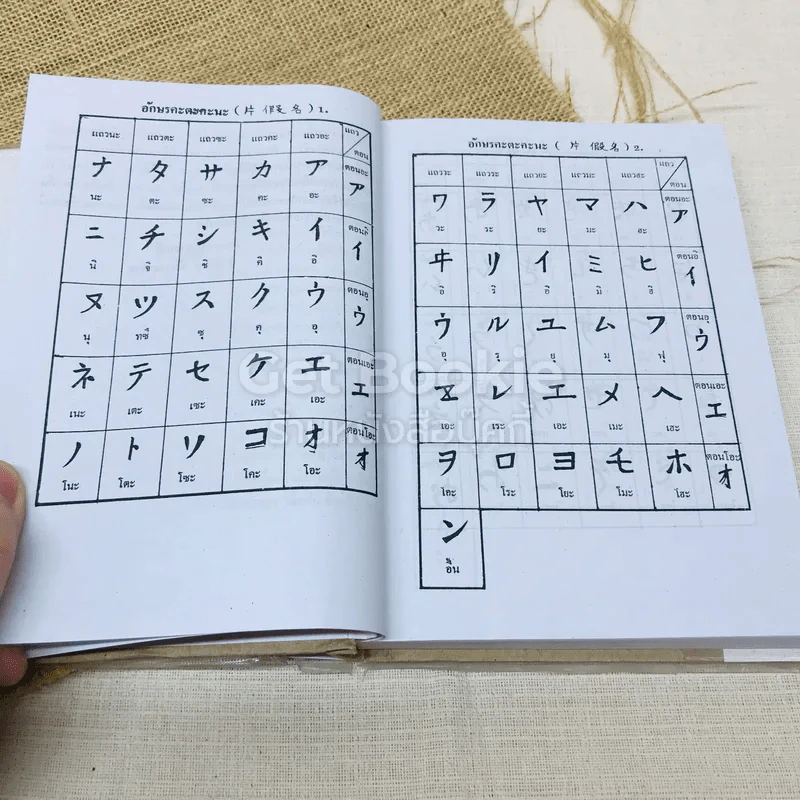 อักษรคะตะคะนะ (片 假 名) 1.
แถวนะ แถวตะ แถวซะ แถวคะ แถวอะ แถว ตอน
ナ タ サ カ ア ตอนอะ ア
นะ ตะ ซะ คะ อะ
ニ チ シ キ イ ตอนอิ イ
นิ จิ ชิ คิ อิ
ヌ ツ ス ク ウ ตอนอุ ウ
นุ ทซึ ซุ คุ อุ
ネ テ セ ケ エ ตอนเอะ エ
เนะ เตะ เซะ เคะ เอะ
ノ ト ソ コ オ ตอนโอะ オ
โนะ โตะ โซะ โคะ โอะ
อักษรคะตะคะนะ (片 假 名) 2.
แถววะ แถวระ แถวยะ แถวมะ แถวฮะ แถว ตอน
ワ ラ ヤ マ ハ ตอนอะ ア
วะ ระ ยะ มะ ฮะ
ヰ リ イ ミ ヒ ตอนอิ イ
อิ ริ อิ มิ ฮิ
ウ ル ユ ム フ ตอนอุ ウ
อุ รุ ยุ มุ ฟุ
ヱ レ エ メ ヘ ตอนเอะ エ
เอะ เระ เอะ เมะ เฮะ
ヲ ロ ヨ モ ホ ตอนโอะ オ
โอะ โระ โยะ โมะ โฮะ
ン
อึน
Get Bookie
ร้านหนังสือบุ๊คกี้